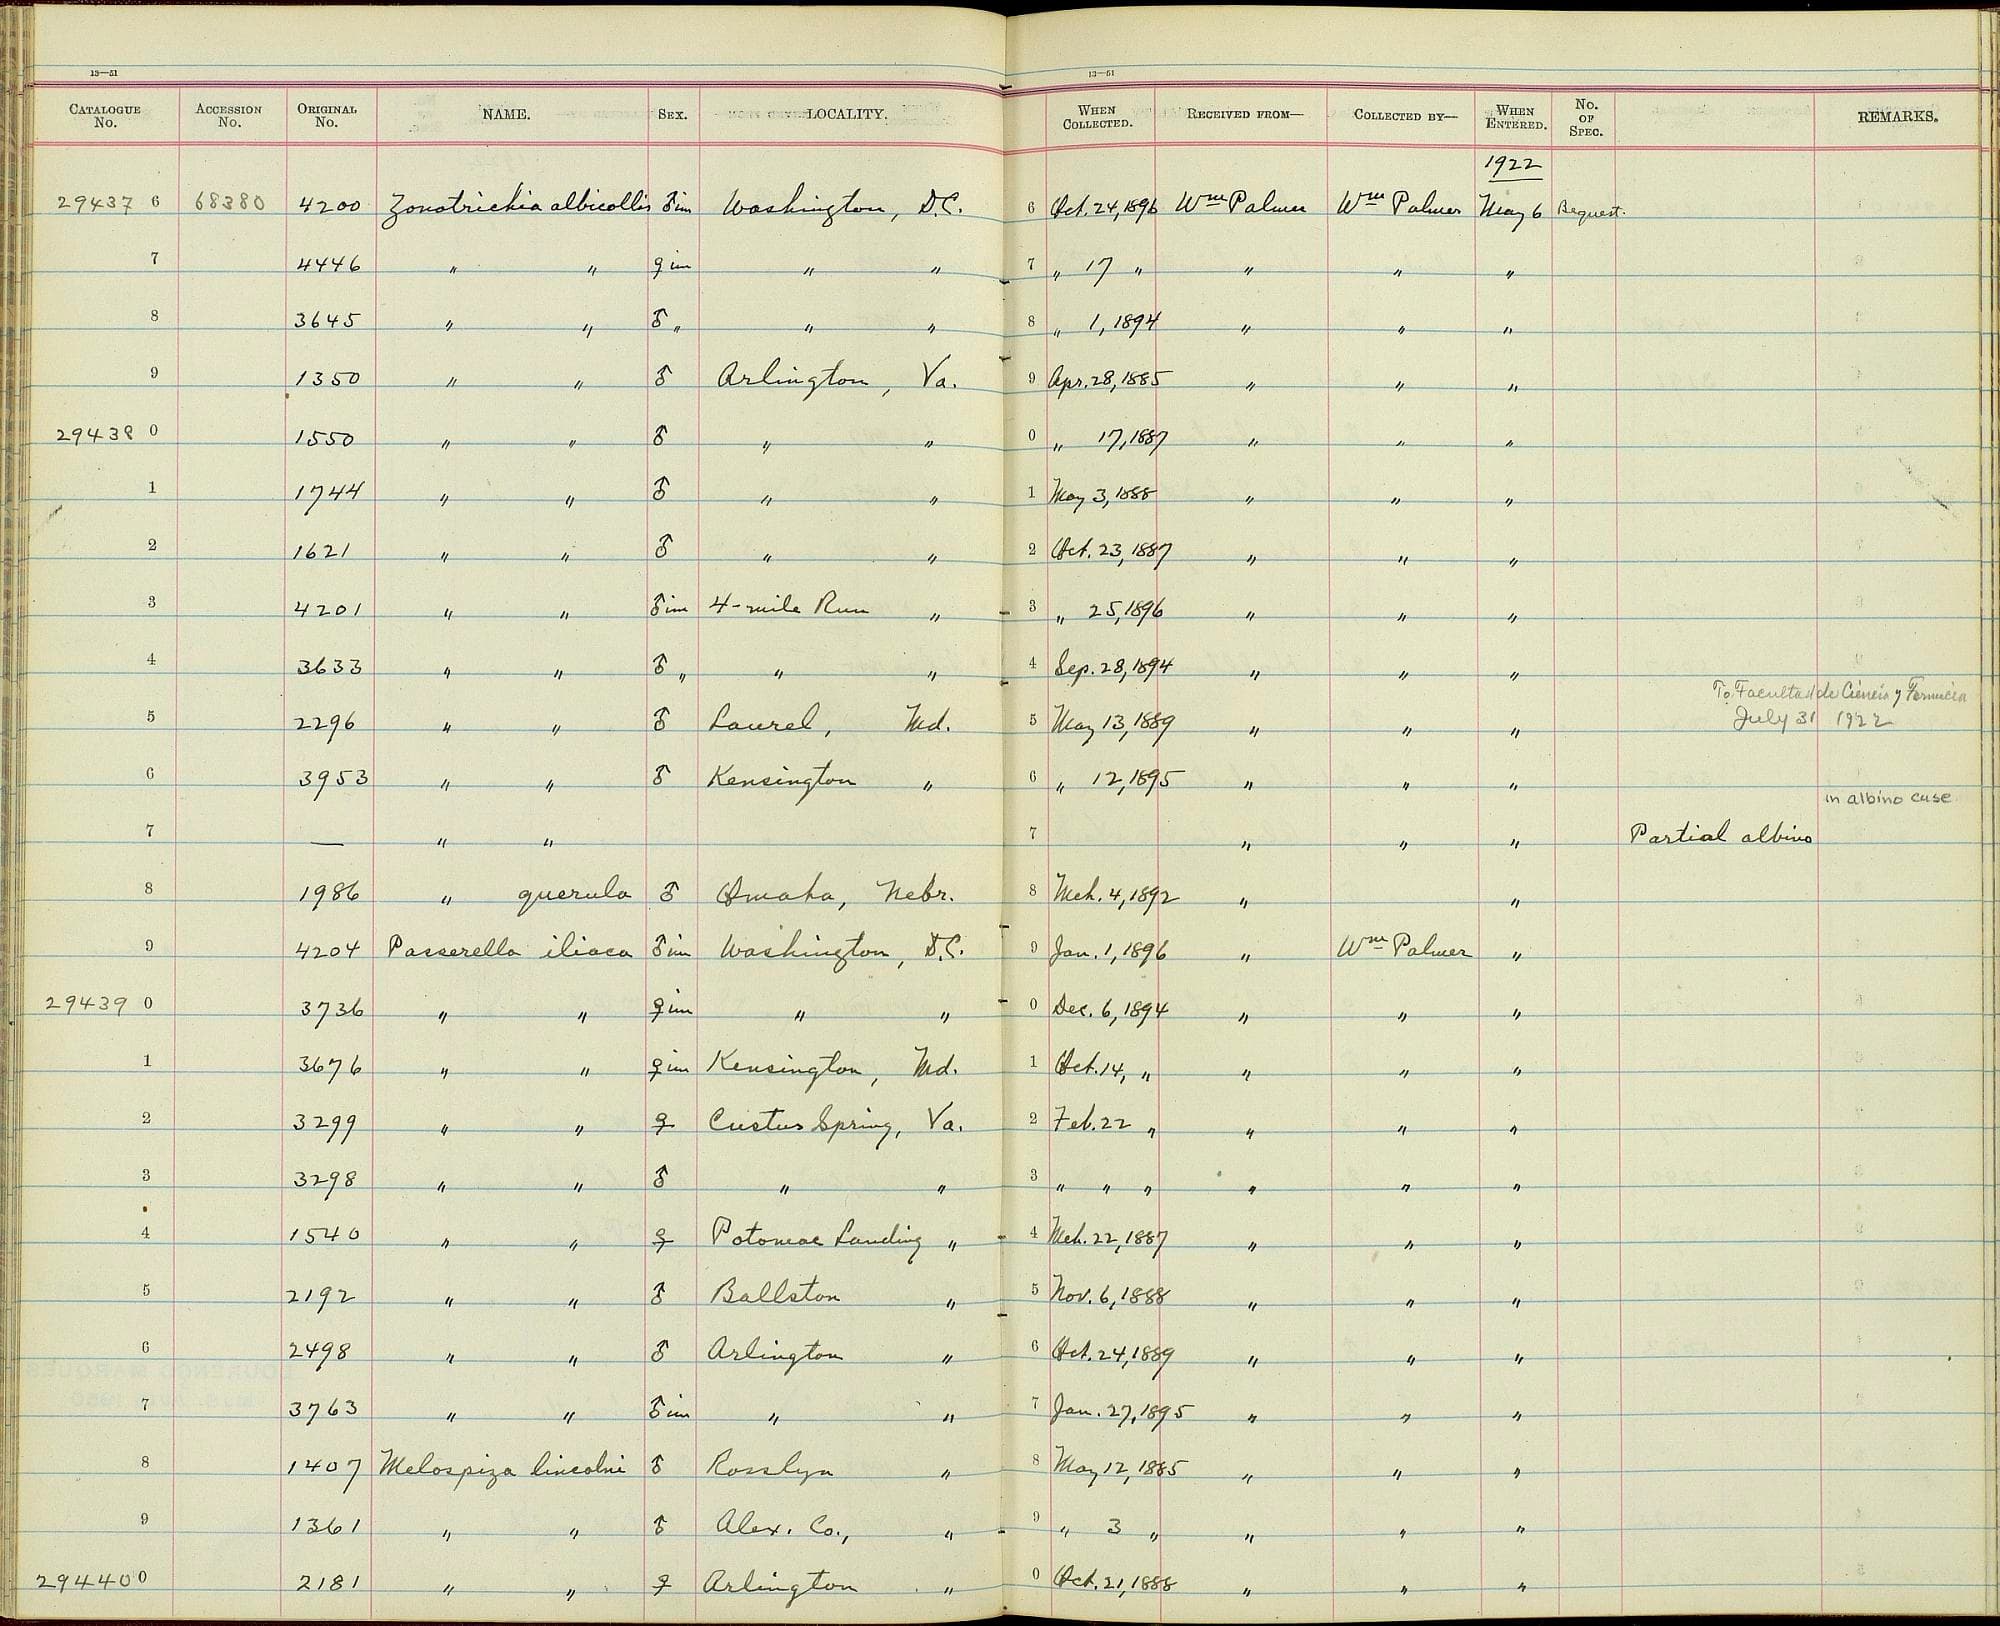 13—51 13—51
CATALOGUE No. ACCESSION No. ORIGINAL No. NAME. SEX. LOCALITY. WHEN COLLECTED. RECEIVED FROM— COLLECTED BY— WHEN ENTERED. No. OF SPEC. REMARKS.
1922
29437 6 68380 4200 Zonotrichia albicollis ♂ im Washington, D.C. 6 Oct. 24, 1896 Wm Palmer Wm Palmer May 6 Bequest.
7 4446 " " ♀ im " " 7 " 17 " " " "
8 3645 " " ♂ " " " 8 " 1, 1894 " " "
9 1350 " " ♂ Arlington, Va. 9 Apr. 28, 1885 " " "
29438 0 1550 " " ♂ " " 0 " 17, 1887 " " "
1 1744 " " ♂ " " 1 May 3, 1888 " " "
2 1621 " " ♂ " " 2 Oct. 23, 1887 " " "
3 4201 " " ♂ im 4-mile Run " 3 " 25, 1896 " " "
4 3633 " " ♂ " " " 4 Sep. 28, 1894 " " "
To Facultad de Ciencia y
5 2296 " " ♂ Laurel, Md. 5 May 13, 1889 " " " July 31 1922
6 3953 " " ♂ Kensington " 6 " 12, 1895 " " "
in albino case
7 — " " 7 " " " Partial albino
8 1986 " querula ♂ Omaha, Nebr. 8 Mch. 4, 1892 " "
9 4204 Passerella iliaca ♂ im Washington, D.C. 9 Jan. 1, 1896 " Wm Palmer "
29439 0 3736 " " ♀ im " " 0 Dec. 6, 1894 " " "
1 3676 " " ♀ im Kensington, Md. 1 Oct. 14, " " " "
2 3299 " " ♀ Custus Spring, Va. 2 Feb. 22 " " " "
3 3298 " " ♂ " " 3 " " " " " "
4 1540 " " ♀ Potomac Landing " 4 Mch. 22, 1887 " " "
5 2192 " " ♂ Ballston " 5 Nov. 6, 1888 " " "
6 2498 " " ♂ Arlington " 6 Oct. 24, 1889 " " "
7 3763 " " ♂ im " " 7 Jan. 27, 1895 " " "
8 1407 Melospiza lincolni ♂ Rosslyn " 8 May 12, 1885 " " "
9 1361 " " ♂ Alex. Co., " 9 " 3 " " " "
29440 0 2181 " " ♀ Arlington " 0 Oct. 21, 1888 " " "